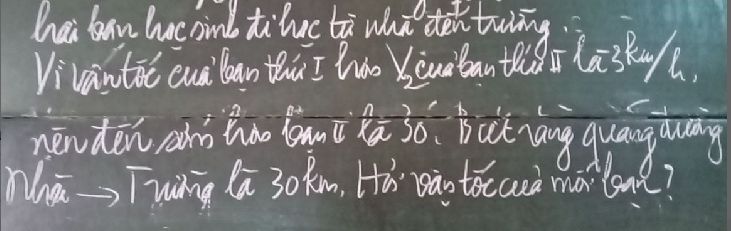 hai bạn học sinh đi học từ nhà đến trường.
Vì vận tốc của bạn thứ I hơn V₂ của bạn thứ II là 3km/h,
nên đến sớm hơn bạn II là 30'. Biết rằng quãng đường
Nhà → Trường là 30km. Hỏi vận tốc của mỗi bạn?